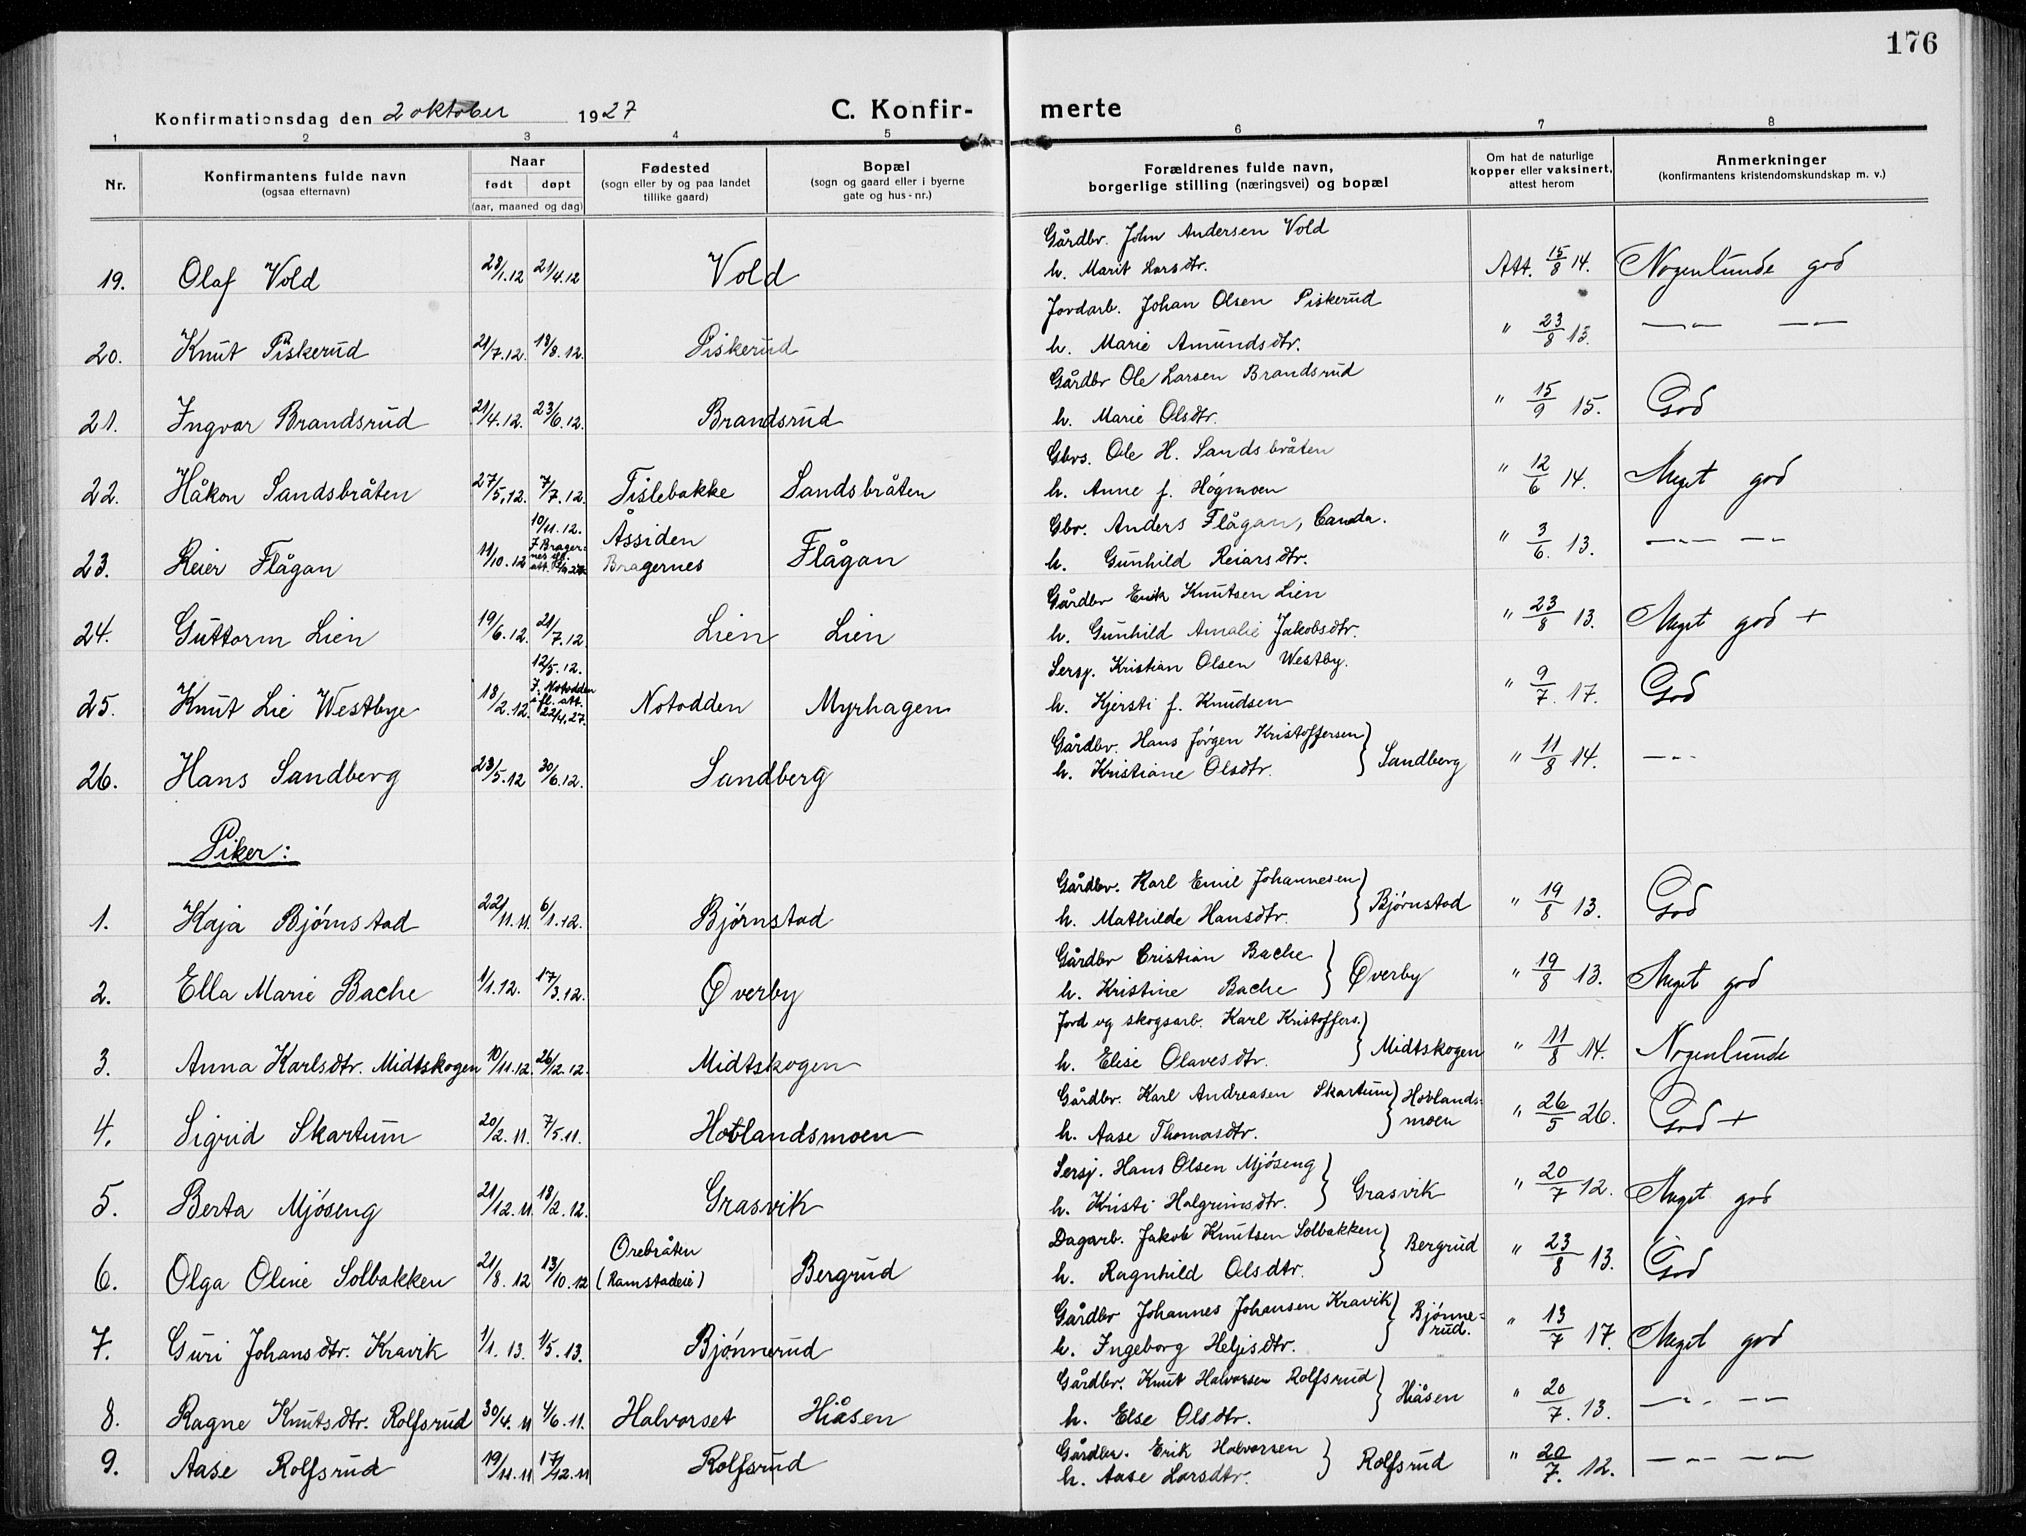 176
Konfirmationsdag den 2 oktober 1927
C. Konfir- merte
1 2 3 4 5 6 7 8
Nr.
Konfirmantens fulde navn
(ogsaa efternavn)
Naar
født døpt
(aar, maaned og dag)
Fødested
(sogn eller by og paa landet
tillike gaard)
Bopæl
(sogn og gaard eller i byerne
gate og hus-nr.)
Forældrenes fulde navn,
borgerlige stilling (næringsvei) og bopæl
Om hat de naturlige
kopper eller vaksinert,
attest herom
Anmerkninger
(konfirmantens kristendomskundskap m. v.)
Gårdbr. John Andersen Vold
19. Olaf Vold 28/1.12 21/4.12 Vold h. Marit Larsdtr. Att. 15/8 14. Nogenlunde god
Jordarb. Johan Olsen Piskerud
20. Knut Piskerud 21/7.12. 18/8.12. Piskerud h. Marie Amundsdtr. " 23/8 13. —"— —"—
Gårdbr Ole Larsen Brandsrud
21. Ingvar Brandsrud 21/4.12. 23/6.12. Brandsrud h. Marie Olsdtr. " 15/9 15. God
Gbrs. Ole H. Sandsbråten
22. Håkon Sandsbråten 27/5.12. 7/7.12. Tislebakke Sandsbråten h. Anne f. Høgmoen " 12/6 14. Meget god
10/11.12. Åssiden Gbr. Anders Flågan, Canda.
23. Reier Flågan 11/10.12 Bragernes Flågan h. Gunhild Reiarsdtr. " 3/6. 13. —"— —"—
Gårdbr Erik Knutsen Lien
24. Guttorm Lien 19/6.12. 21/7.12. Lien Lien h. Gunhild Amalie Jakobsdtr. " 23/8 13. Meget god +
12/5.12. Sersj. Kristian Olsen Westby.
25. Knut Lie Westbye 18/2.12. I. Notodden
att.
22/4.27. Notodden Myrhagen h. Kjersti f. Knudsen " 9/7. 17. God
Gårdbr. Hans Jörgen Kristoffersen
26. Hans Sandberg 23/5.12 30/6.12. Sandberg h. Kristiane Olsdtr. } Sandberg " 11/8 14. —"—
Piker:
Gårdbr. Karl Emil Johannesen
1. Kaja Bjørnstad 22/11.11. 6/1.12. Bjørnstad h. Mathilde Hansdtr. } Bjørnstad " 19/8 13. God
Gårdbr Cristian Bache
2. Ella Marie Bache 1/1.12. 17/3.12. Øverby h. Kristine Bache } Øverby " 19/8 13. Meget god
Jord og skogsarb. Karl Kristoffers.
3. Anna Karlsdtr. Midtskogen 10/11.12. 26/12.12. Midtskogen h. Elise Olavesdtr. } Midtskogen " 11/8 14. Nogenlunde
Gårdbr. Karl Andreasen Skartum
4. Sigrid Skartum 20/2.11. 7/5.11. Hovlandsmoen h. Aase Thomasdtr. } Hovlands-
moen " 26/5 26. God +
Sersj. Hans Olsen Mjöseng
5. Berta Mjöseng 21/12.11. 18/2.12. Grasvik h. Kristi Halgrimsdtr. } Grasvik " 20/7 12. Meget god
Orebråten Dagarb. Jakob Knutsen Solbakken
6. Olga Oline Solbakken 21/8.12 13/10.12 (Ramstadeie) Bergrud h. Ragnhild Olsdtr. } Bergrud " 23/8 13. God
Gårdbr Johannes Johansen Kravik
7. Guri Johansdtr. Kravik 1/1.13. 1/5.13. Bjønnerud h. Ingeborg Helgisdtr. } Bjønne-
rud. " 13/7 17. Meget god
Gårdbr. Knut Halvorsen Rolfsrud
8. Ragne Knutsdtr. Rolfsrud 30/4.11 4/6.11. Halvorset Hiåsen h. Else Olsdtr. } Hiåsen " 20/7. 13. —"— —"—
Gårdbr. Erik Halvorsen
9. Aase Rolfsrud 19/11.11 17/12.11 Rolfsrud h. Aase Larsdtr. } Rolfsrud " 20/7. 12. —"— —"—